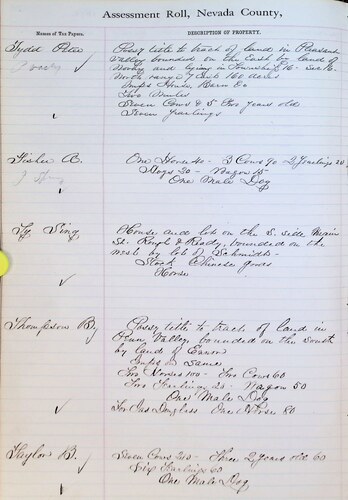 Assessment Roll, Nevada County,
Names of Tax Payers.
DESCRIPTION OF PROPERTY.
Tydd Peter
Possy title to tract of land in Pleasant
Valley bounded on the East by land of
and lying in Township 16
North range 7 East 160 acres
Imps House, Barn &c
Two Mules
Seven Cows & 5 Two years old
Seven Yearlings
Fisher A.
One Horse 40 - 3 Cows 90 2 Yearlings 20
Hogs 20 - Wagon 15
One Male Dog
Ty Sing
House and lot on the S. side Main
St. Rough & Ready, bounded on the
west by lot of Schmidts
Stock Chinese goods
Horse
Thompson By
Possy title to tract of land in
Penn Valley bounded on the South
by land of
Imps on Same
Two Horses 100 - Two Cows 60
Two Yearlings 20 - Wagon 50
One Male Dog
For Jas Douglass One Horse 80
Taylor B.
Seven Cows 210 - Three 2 years old 60
Six Yearlings 60
One Male Dog